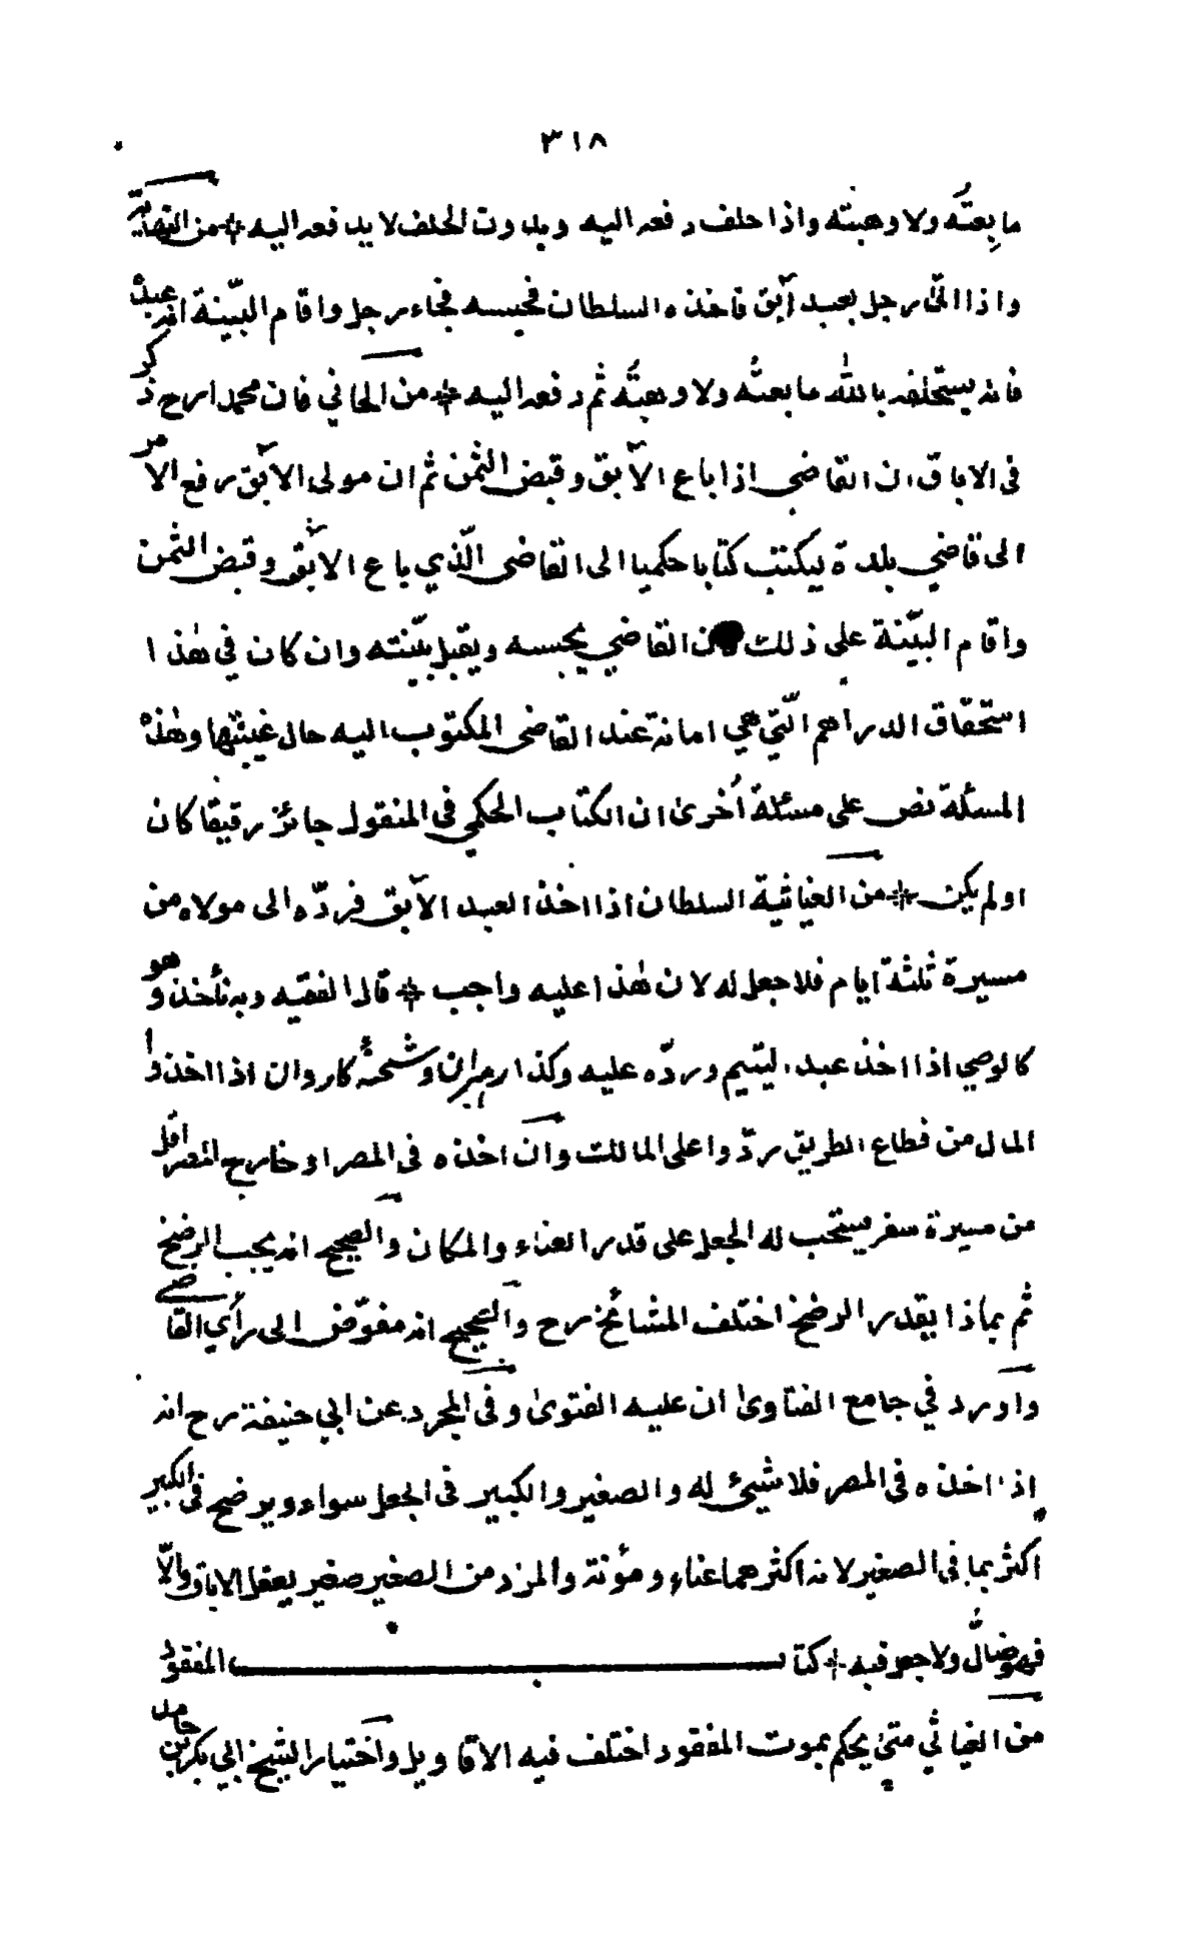 ٣١٨
ما بعتُه ولا وهبته واذا حلف دفعه اليه وبدون الحلف لا يدفعه اليه من النهاية
واذا اتى رجل بعبد آبق فاخذه السلطان فحبسه فجاء رجل واقام البيّنة انه عبدهُ
فانه يستحلفه باللّه ما بعتُه ولا وهبتُه ثم دفعه اليه من الخاني فان محمدا رح ذكر
فى الاباق ان القاضي اذا باع الآبق وقبض الثمن ثم ان مولى الآبق رفع الامر
الى قاضي بلدة ليكتب كتابا حكميا الى القاضى الّذي باع الآبق وقبض الثمن
واقام البيّنة على ذلك القاضي يحبسه ويقبل بيّنته وان كان في هٰذا
استحقاق الدراهم الّتي هي امانة عند القاضى المكتوب اليه حال غيبتها وهٰذه
المسئلة نص على مسئلة اُخرىٰ ان الكتاب الحكمي فى المنقول جائز رقيقا كان
او لم يكن من الغياثية السلطان اذا اخذ العبد الآبق فردّه الى مولاه من
مسيرة ثلثة ايام فلا جعل له لان هٰذا عليه واجب قال الفقيه وبه نأخذ وهو
كالوصي اذا اخذ عبد اليتيم وردّه عليه وكذا رهبران وشحنهٔ كاروان اذا اخذوا
المال من قطاع الطريق ردّوا على المالك وان اخذه فى المصر او خارج المصر اقل
من مسيرة سفر يستحب له الجعل على قدر العناء والمكان والصحيح انه يجب الرضخ
ثم بماذا يقدر الرضخ اختلف المشائخ رح والصحيح انه مفوّض الى رأي القاضي
واورد في جامع الفتاوىٰ ان عليه الفتوىٰ وفى المجرد عن ابي حنيفة رح انه
اذا اخذه فى المصر فلا شيئ له والصغير والكبير فى الجعل سواء ويرضخ فى الكبير
اكثر بما فى الصغير لانه اكثرهما عناء ومؤنة والمزد من الصغير صغير يعقل الاباق والّا
فهو ضالٌّ ولا جعل فيه كتاب المفقود
من الغياثي متى يحكم بموت المفقود اختلف فيه الاقاويل واختيار الشيخ ابي بكر بن حامد